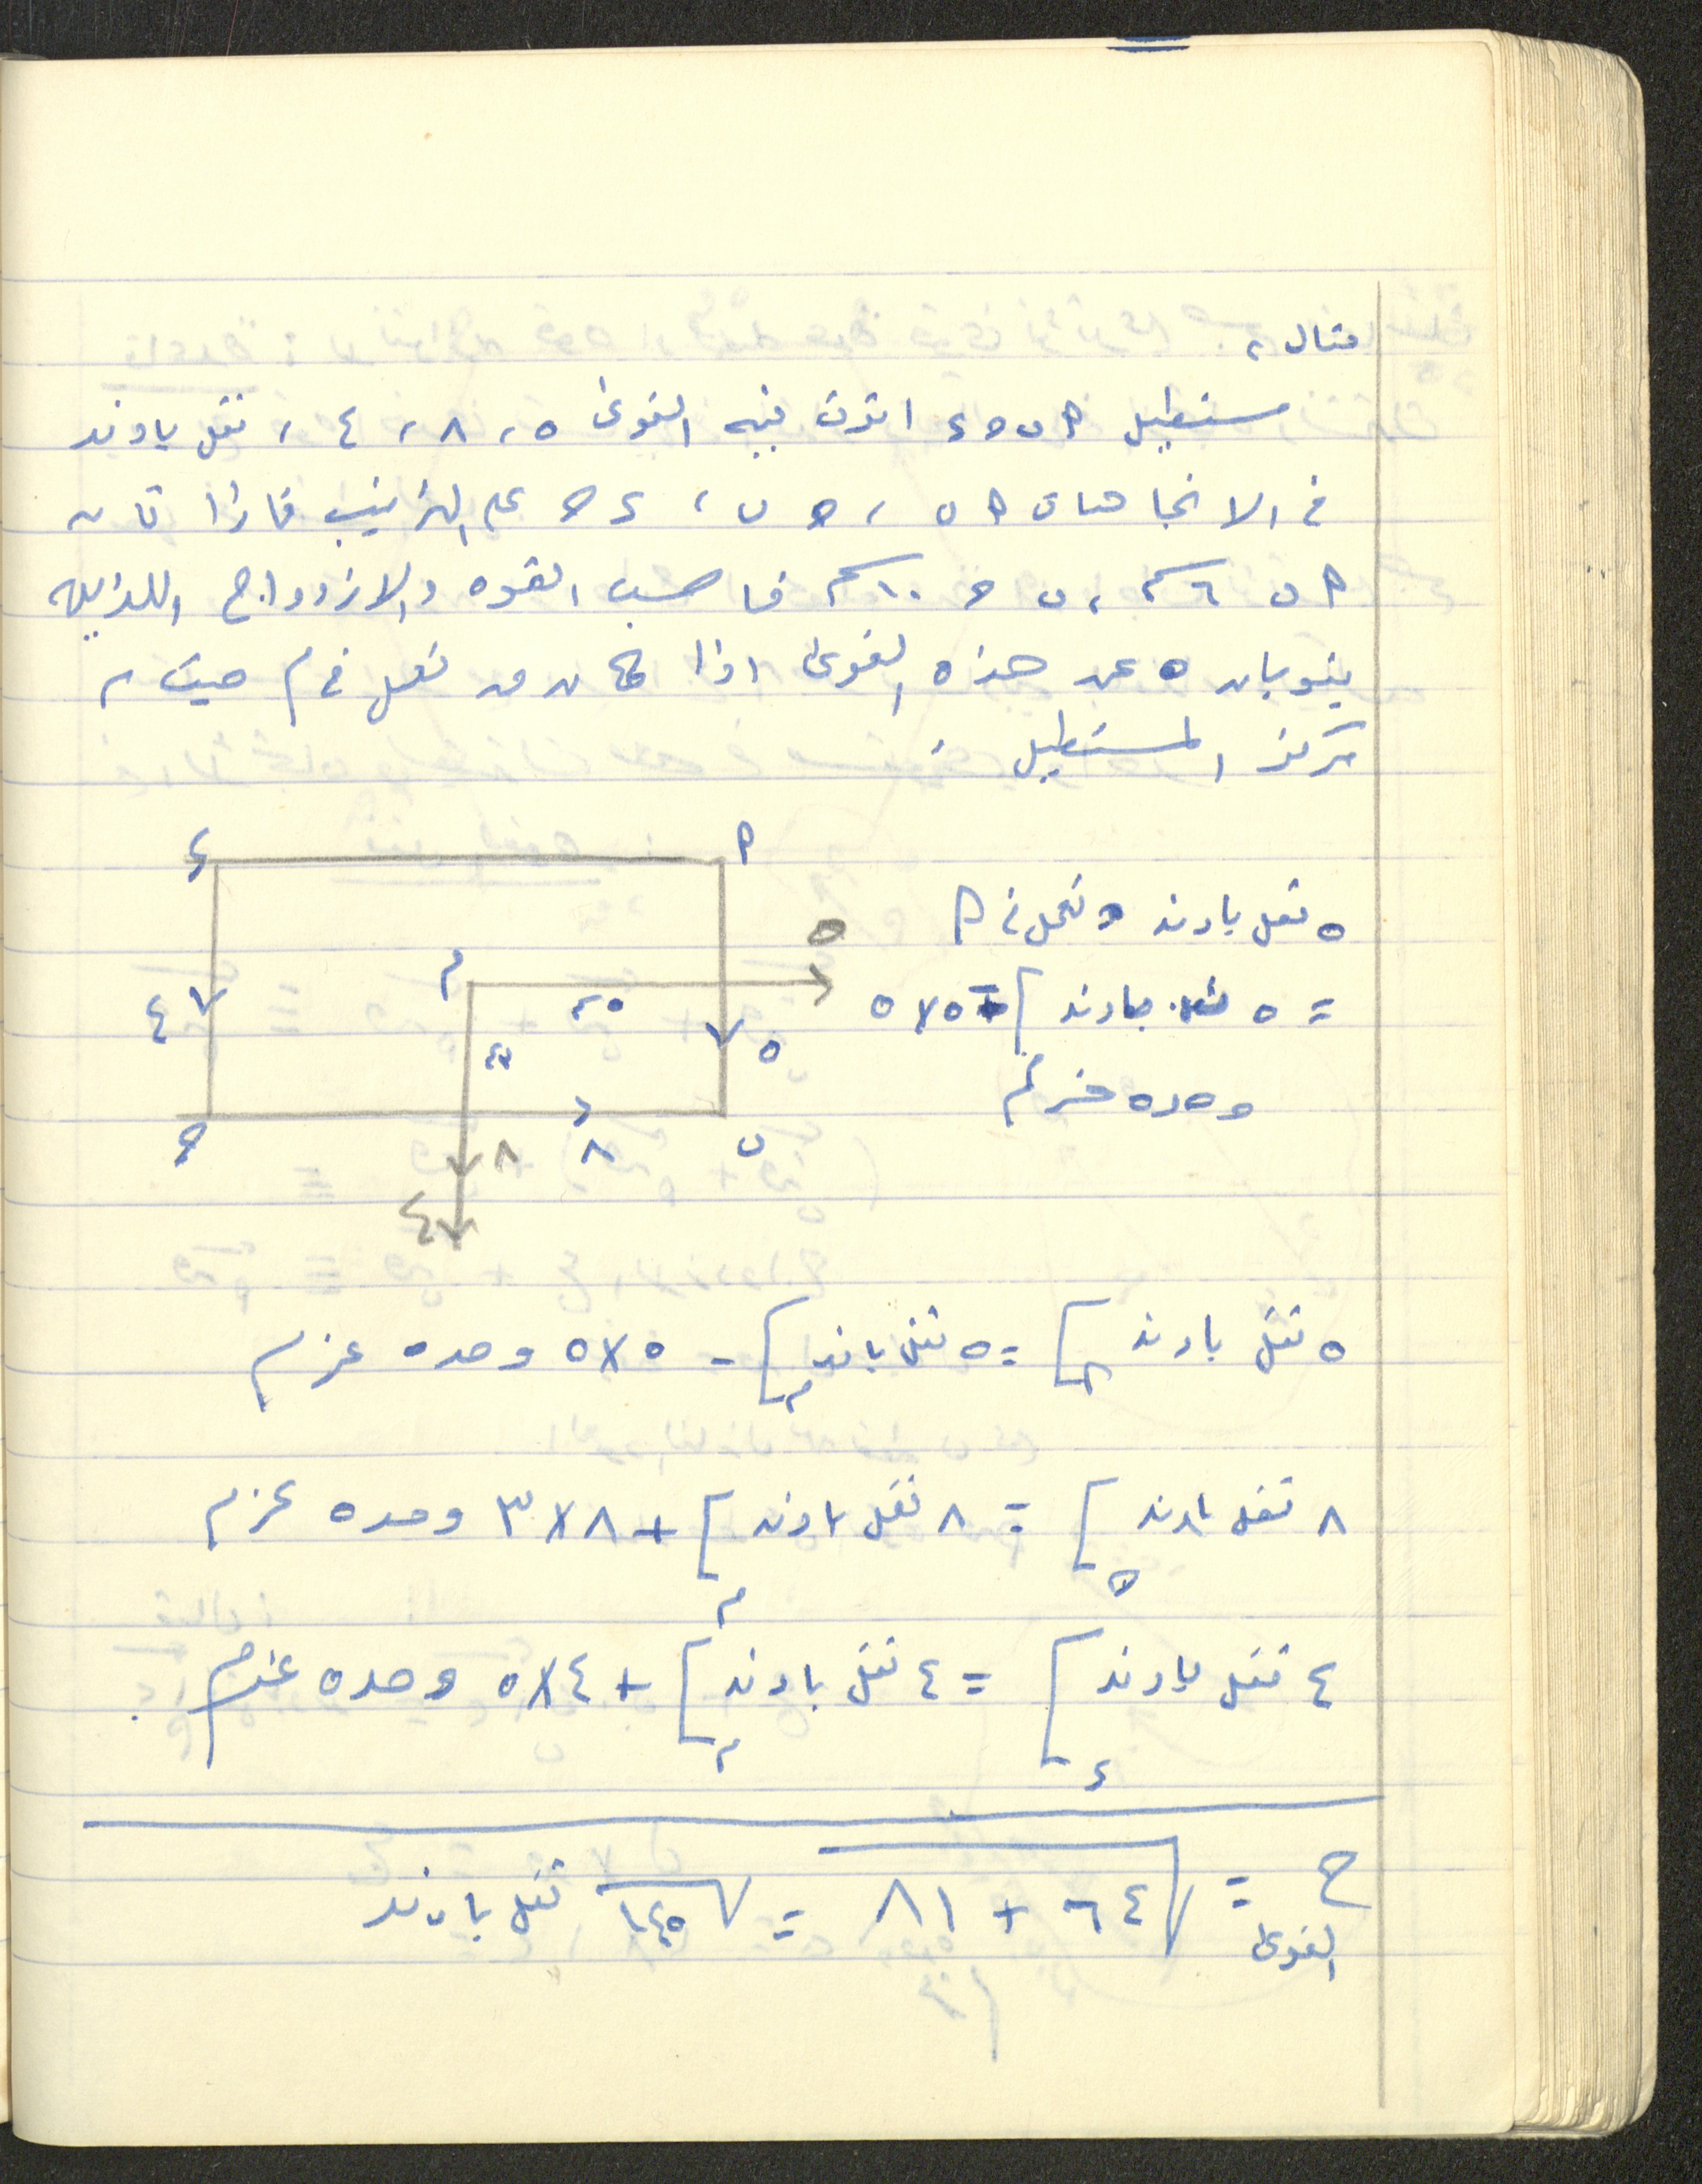 مثال ،
مستطيل ح ب ھ ء اثرت فيه القوى ٥ ، ٨ ، ٤ ، ثقل باوند
في الاتجاهات ح ب ، ھ ب ، ء ھ على الترتيب فاذا كان
ح ب ٦ ، ب ھ ١٠ فاحسب القوه والازدواج اللذين
ينوبان عن هذه القوى اذا كان تعمل في م حيث م
مركز المستطيل
ء ح
٥ ثقل باوند وتعمل في ح
م ٥
= ٥ ثقل باوند] - ٥×٥
٤ ٥ ٣ ٥
وحده عزم
ھ ٨ ٨ ب
٤
٥ ثقل باوند]ح = ٥ ثقل باند]م - ٥×٥ وحده عزم
٨ ثقل باوند]ھ = ٨ ثقل باوند]م + ٨×٣ وحده عزم
٤ ثقل باوند]ء = ٤ ثقل باوند]م + ٤×٥ وحده عزم
ح القوى = √٦٤ + ٨١ = √١٤٥ ثقل باوند